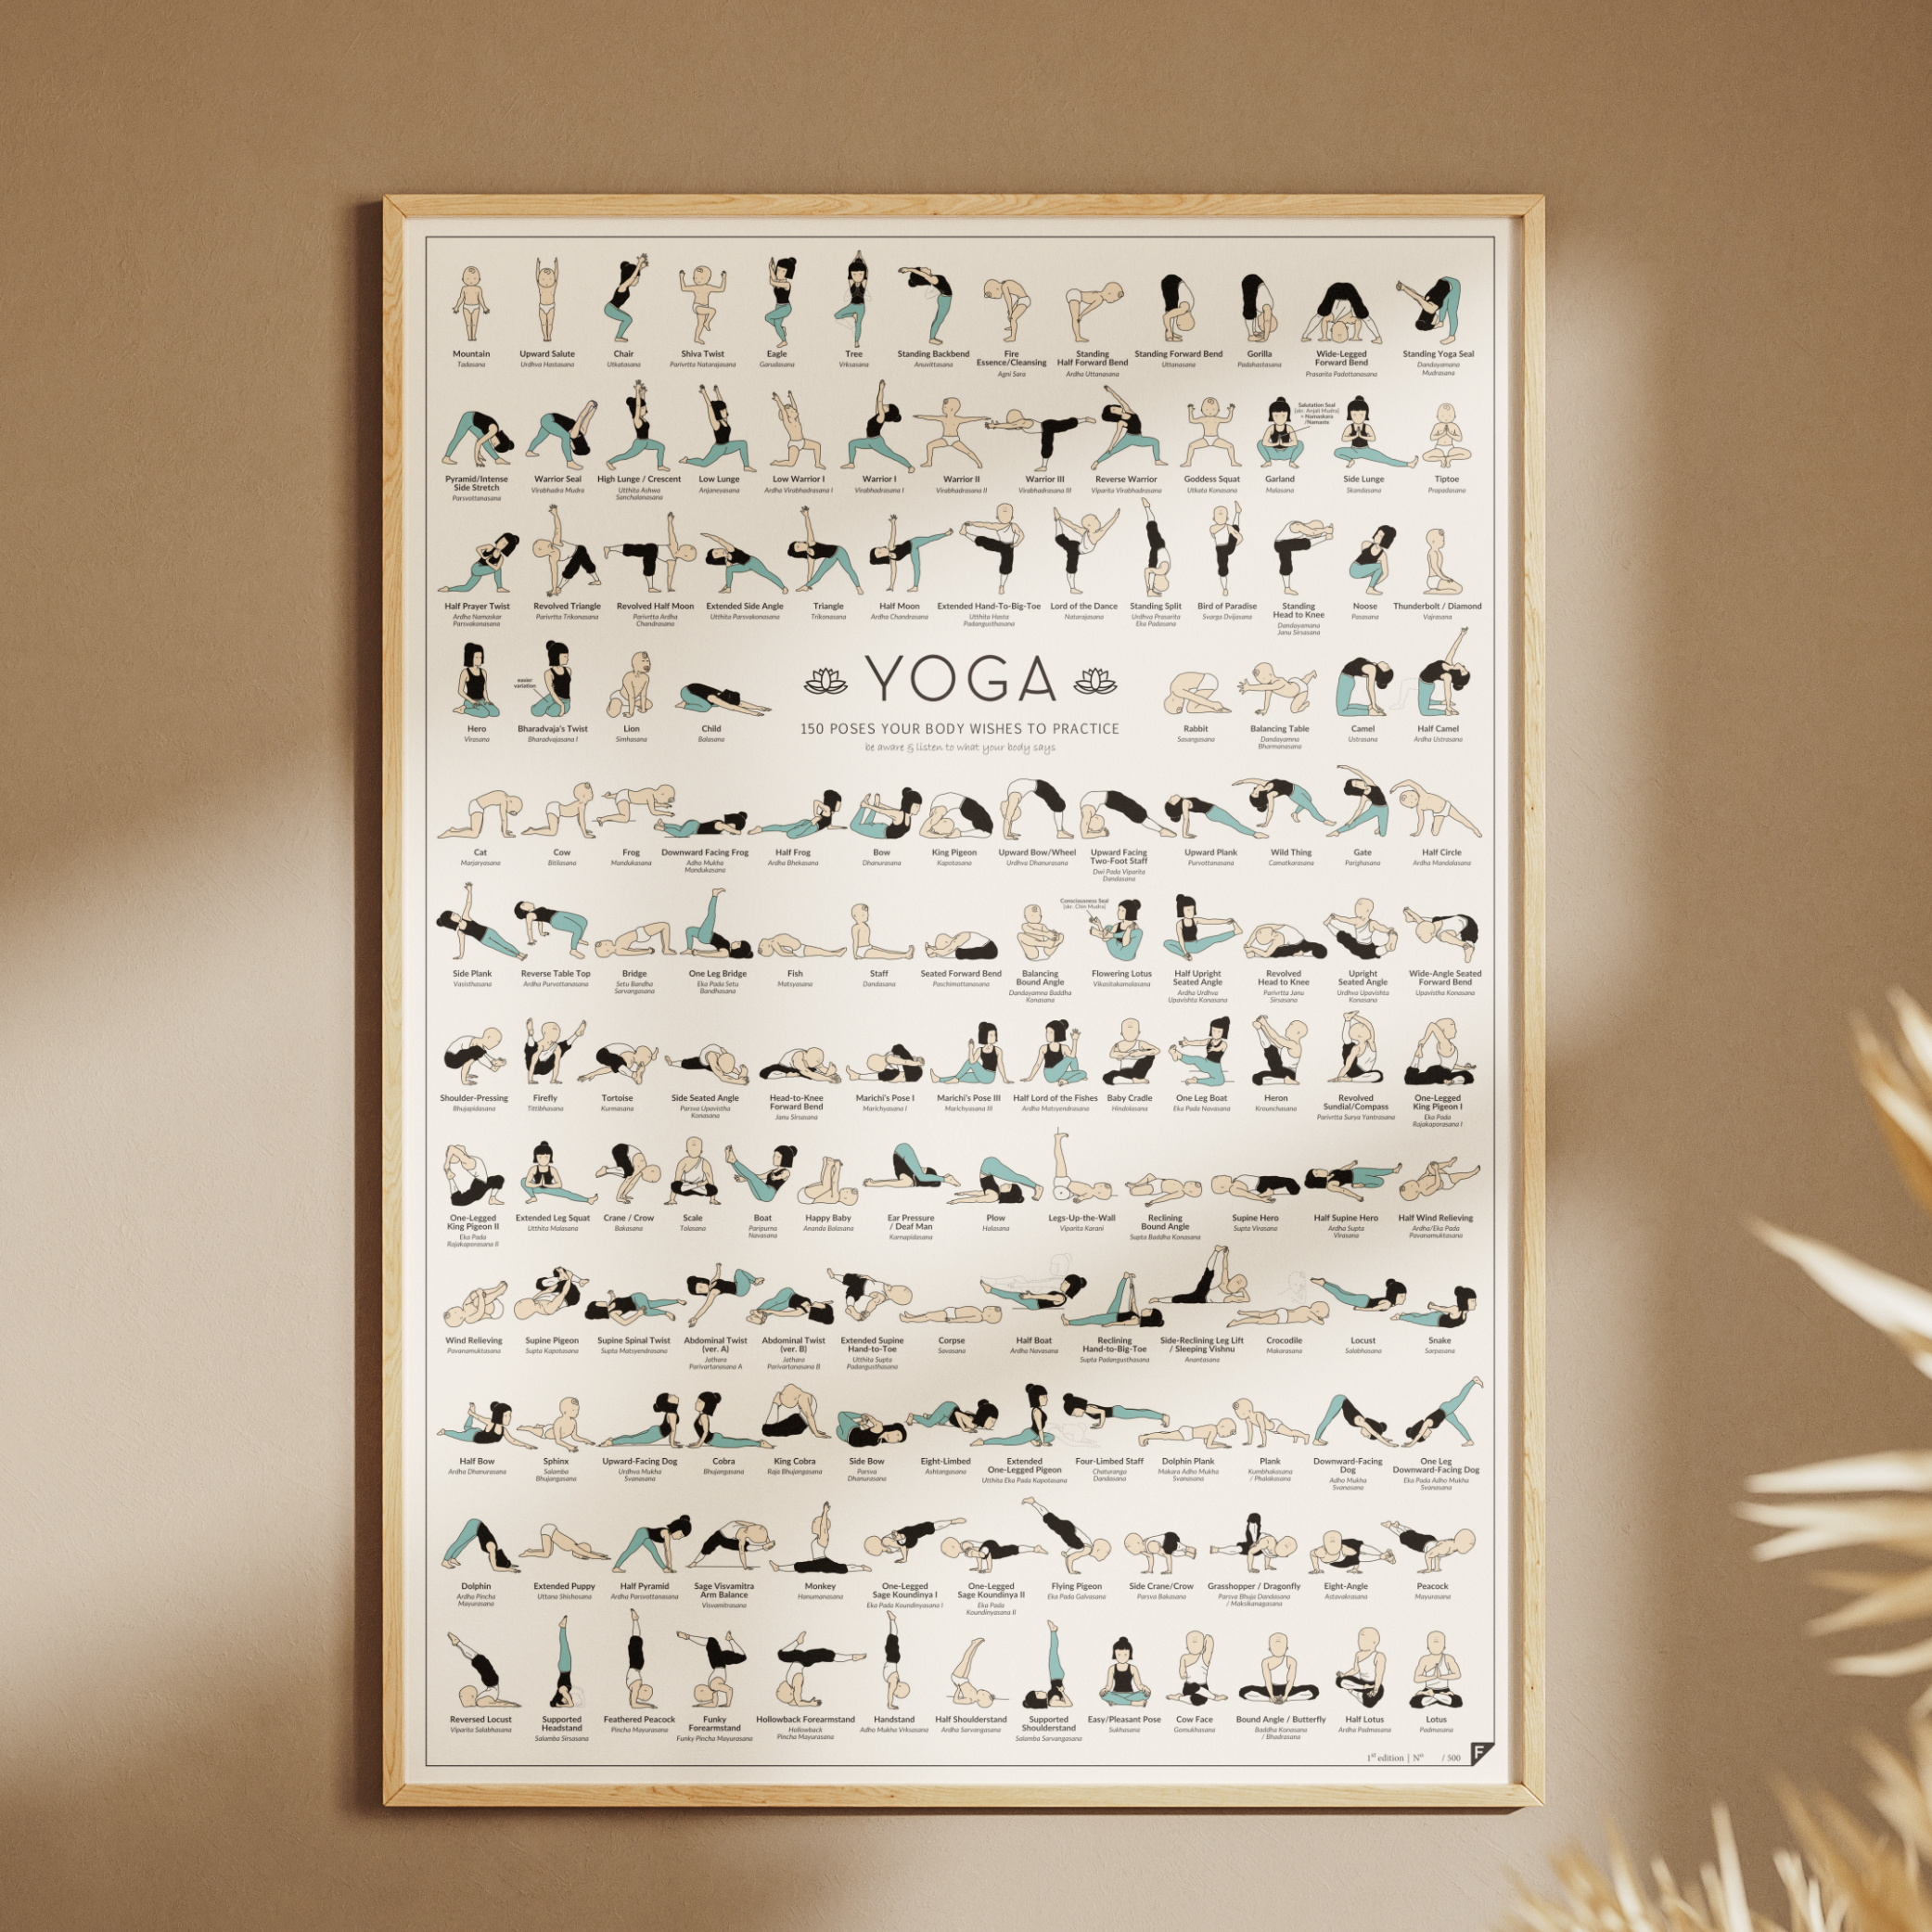 Mountain
Tadasana
Upward Salute
Urdhva Hastasana
Chair
Utkatasana
Shiva Twist
Parivrtta Natarajasana
Eagle
Garudasana
Tree
Vrksasana
Standing Backbend
Anuvittasana
Fire
Essence/Cleansing
Agni Sara
Standing
Half Forward Bend
Ardha Uttanasana
Standing Forward Bend
Uttanasana
Gorilla
Padahastasana
Wide-Legged
Forward Bend
Prasarita Padottanasana
Standing Yoga Seal
Dandayamana
Mudrasana
Pyramid/Intense
Side Stretch
Parsvottanasana
Warrior Seal
Virabhadra Mudra
High Lunge / Crescent
Utthita Ashwa
Sanchalanasana
Low Lunge
Anjaneyasana
Low Warrior I
Ardha Virabhadrasana I
Warrior I
Virabhadrasana I
Warrior II
Virabhadrasana II
Warrior III
Virabhadrasana III
Reverse Warrior
Viparita Virabhadrasana
Goddess Squat
Utkata Konasana
Salutation Seal
[skr. Anjali Mudra]
= Namaskara
/Namaste
Garland
Malasana
Side Lunge
Skandasana
Tiptoe
Prapadasana
Half Prayer Twist
Ardha Namaskar
Parsvakonasana
Revolved Triangle
Parivrtta Trikonasana
Revolved Half Moon
Parivrtta Ardha
Chandrasana
Extended Side Angle
Utthita Parsvakonasana
Triangle
Trikonasana
Half Moon
Ardha Chandrasana
Extended Hand-To-Big-Toe
Utthita Hasta
Padangusthasana
Lord of the Dance
Natarajasana
Standing Split
Urdhva Prasarita
Eka Padasana
Bird of Paradise
Svarga Dvijasana
Standing
Head to Knee
Dandayamana
Janu Sirsasana
Noose
Pasasana
Thunderbolt / Diamond
Vajrasana
Hero
Virasana
easier
variation
Bharadvaja's Twist
Bharadvajasana I
Lion
Simhasana
Child
Balasana
YOGA
150 POSES YOUR BODY WISHES TO PRACTICE
be aware & listen to what your body says
Rabbit
Sasangasana
Balancing Table
Dandayamna
Bharmanasana
Camel
Ustrasana
Half Camel
Ardha Ustrasana
Cat
Marjaryasana
Cow
Bitilasana
Frog
Mandukasana
Downward Facing Frog
Adho Mukha
Mandukasana
Half Frog
Ardha Bhekasana
Bow
Dhanurasana
King Pigeon
Kapotasana
Upward Bow/Wheel
Urdhva Dhanurasana
Upward Facing
Two-Foot Staff
Dwi Pada Viparita
Dandasana
Upward Plank
Purvottanasana
Wild Thing
Camatkarasana
Gate
Parighasana
Half Circle
Ardha Mandalasana
Side Plank
Vasisthasana
Reverse Table Top
Ardha Purvottanasana
Bridge
Setu Bandha
Sarvangasana
One Leg Bridge
Eka Pada Setu
Bandhasana
Fish
Matsyasana
Staff
Dandasana
Seated Forward Bend
Paschimottanasana
Balancing
Bound Angle
Dandayamna Baddha
Konasana
Consciousness Seal
[skr. Chin Mudra]
Flowering Lotus
Vikasitakamalasana
Half Upright
Seated Angle
Ardha Urdhva
Upavishta Konasana
Revolved
Head to Knee
Parivrtta Janu
Sirsasana
Upright
Seated Angle
Urdhva Upavishta
Konasana
Wide-Angle Seated
Forward Bend
Upavistha Konasana
Shoulder-Pressing
Bhujapidasana
Firefly
Tittibhasana
Tortoise
Kurmasana
Side Seated Angle
Parsva Upavistha
Konasana
Head-to-Knee
Forward Bend
Janu Sirsasana
Marichi's Pose I
Marichyasana I
Marichi's Pose III
Marichyasana III
Half Lord of the Fishes
Ardha Matsyendrasana
Baby Cradle
Hindolasana
One Leg Boat
Eka Pada Navasana
Heron
Krounchasana
Revolved
Sundial/Compass
Parivrtta Surya Yantrasana
One-Legged
King Pigeon I
Eka Pada
Rajakaporasana I
One-Legged
King Pigeon II
Eka Pada
Rajakaporasana II
Extended Leg Squat
Utthita Malasana
Crane / Crow
Bakasana
Scale
Tolasana
Boat
Paripurna
Navasana
Happy Baby
Ananda Balasana
Ear Pressure
/ Deaf Man
Karnapidasana
Plow
Halasana
Legs-Up-the-Wall
Viparita Karani
Reclining
Bound Angle
Supta Baddha Konasana
Supine Hero
Supta Virasana
Half Supine Hero
Ardha Supta
Virasana
Half Wind Relieving
Ardha/Eka Pada
Pavanamuktasana
Wind Relieving
Pavanamuktasana
Supine Pigeon
Supta Kapotasana
Supine Spinal Twist
Supta Matsyendrasana
Abdominal Twist
(ver. A)
Jathara
Parivartanasana A
Abdominal Twist
(ver. B)
Jathara
Parivartanasana B
Extended Supine
Hand-to-Toe
Utthita Supta
Padangusthasana
Corpse
Savasana
Half Boat
Ardha Navasana
Reclining
Hand-to-Big-Toe
Supta Padangusthasana
Side-Reclining Leg Lift
/ Sleeping Vishnu
Anantasana
Crocodile
Makarasana
Locust
Salabhasana
Snake
Sarpasana
Half Bow
Ardha Dhanurasana
Sphinx
Salamba
Bhujangasana
Upward-Facing Dog
Urdhva Mukha
Svanasana
Cobra
Bhujangasana
King Cobra
Raja Bhujangasana
Side Bow
Parsva
Dhanurasana
Eight-Limbed
Ashtangasana
Extended
One-Legged Pigeon
Utthita Eka Pada Kapotasana
Four-Limbed Staff
Chaturanga
Dandasana
Dolphin Plank
Makara Adho Mukha
Svanasana
Plank
Kumbhakasana
/ Phalakasana
Downward-Facing
Dog
Adho Mukha
Svanasana
One Leg
Downward-Facing Dog
Eka Pada Adho Mukha
Svanasana
Dolphin
Ardha Pincha
Mayurasana
Extended Puppy
Uttana Shishosana
Half Pyramid
Ardha Parsvottanasana
Sage Visvamitra
Arm Balance
Visvamitrasana
Monkey
Hanumanasana
One-Legged
Sage Koundinya I
Eka Pada Koundinyasana I
One-Legged
Sage Koundinya II
Eka Pada
Koundinyasana II
Flying Pigeon
Eka Pada Galvasana
Side Crane/Crow
Parsva Bakasana
Grasshopper / Dragonfly
Parsva Bhuja Dandasana
/ Maksikanagasana
Eight-Angle
Astavakrasana
Peacock
Mayurasana
Reversed Locust
Viparita Salabhasana
Supported
Headstand
Salamba Sirsasana
Feathered Peacock
Pincha Mayurasana
Funky
Forearmstand
Funky Pincha Mayurasana
Hollowback Forearmstand
Hollowback
Pincha Mayurasana
Handstand
Adho Mukha Vrksasana
Half Shoulderstand
Ardha Sarvangasana
Supported
Shoulderstand
Salamba Sarvangasana
Easy/Pleasant Pose
Sukhasana
Cow Face
Gomukhasana
Bound Angle / Butterfly
Baddha Konasana
/ Bhadrasana
Half Lotus
Ardha Padmasana
Lotus
Padmasana
1st edition | Nº / 500
F